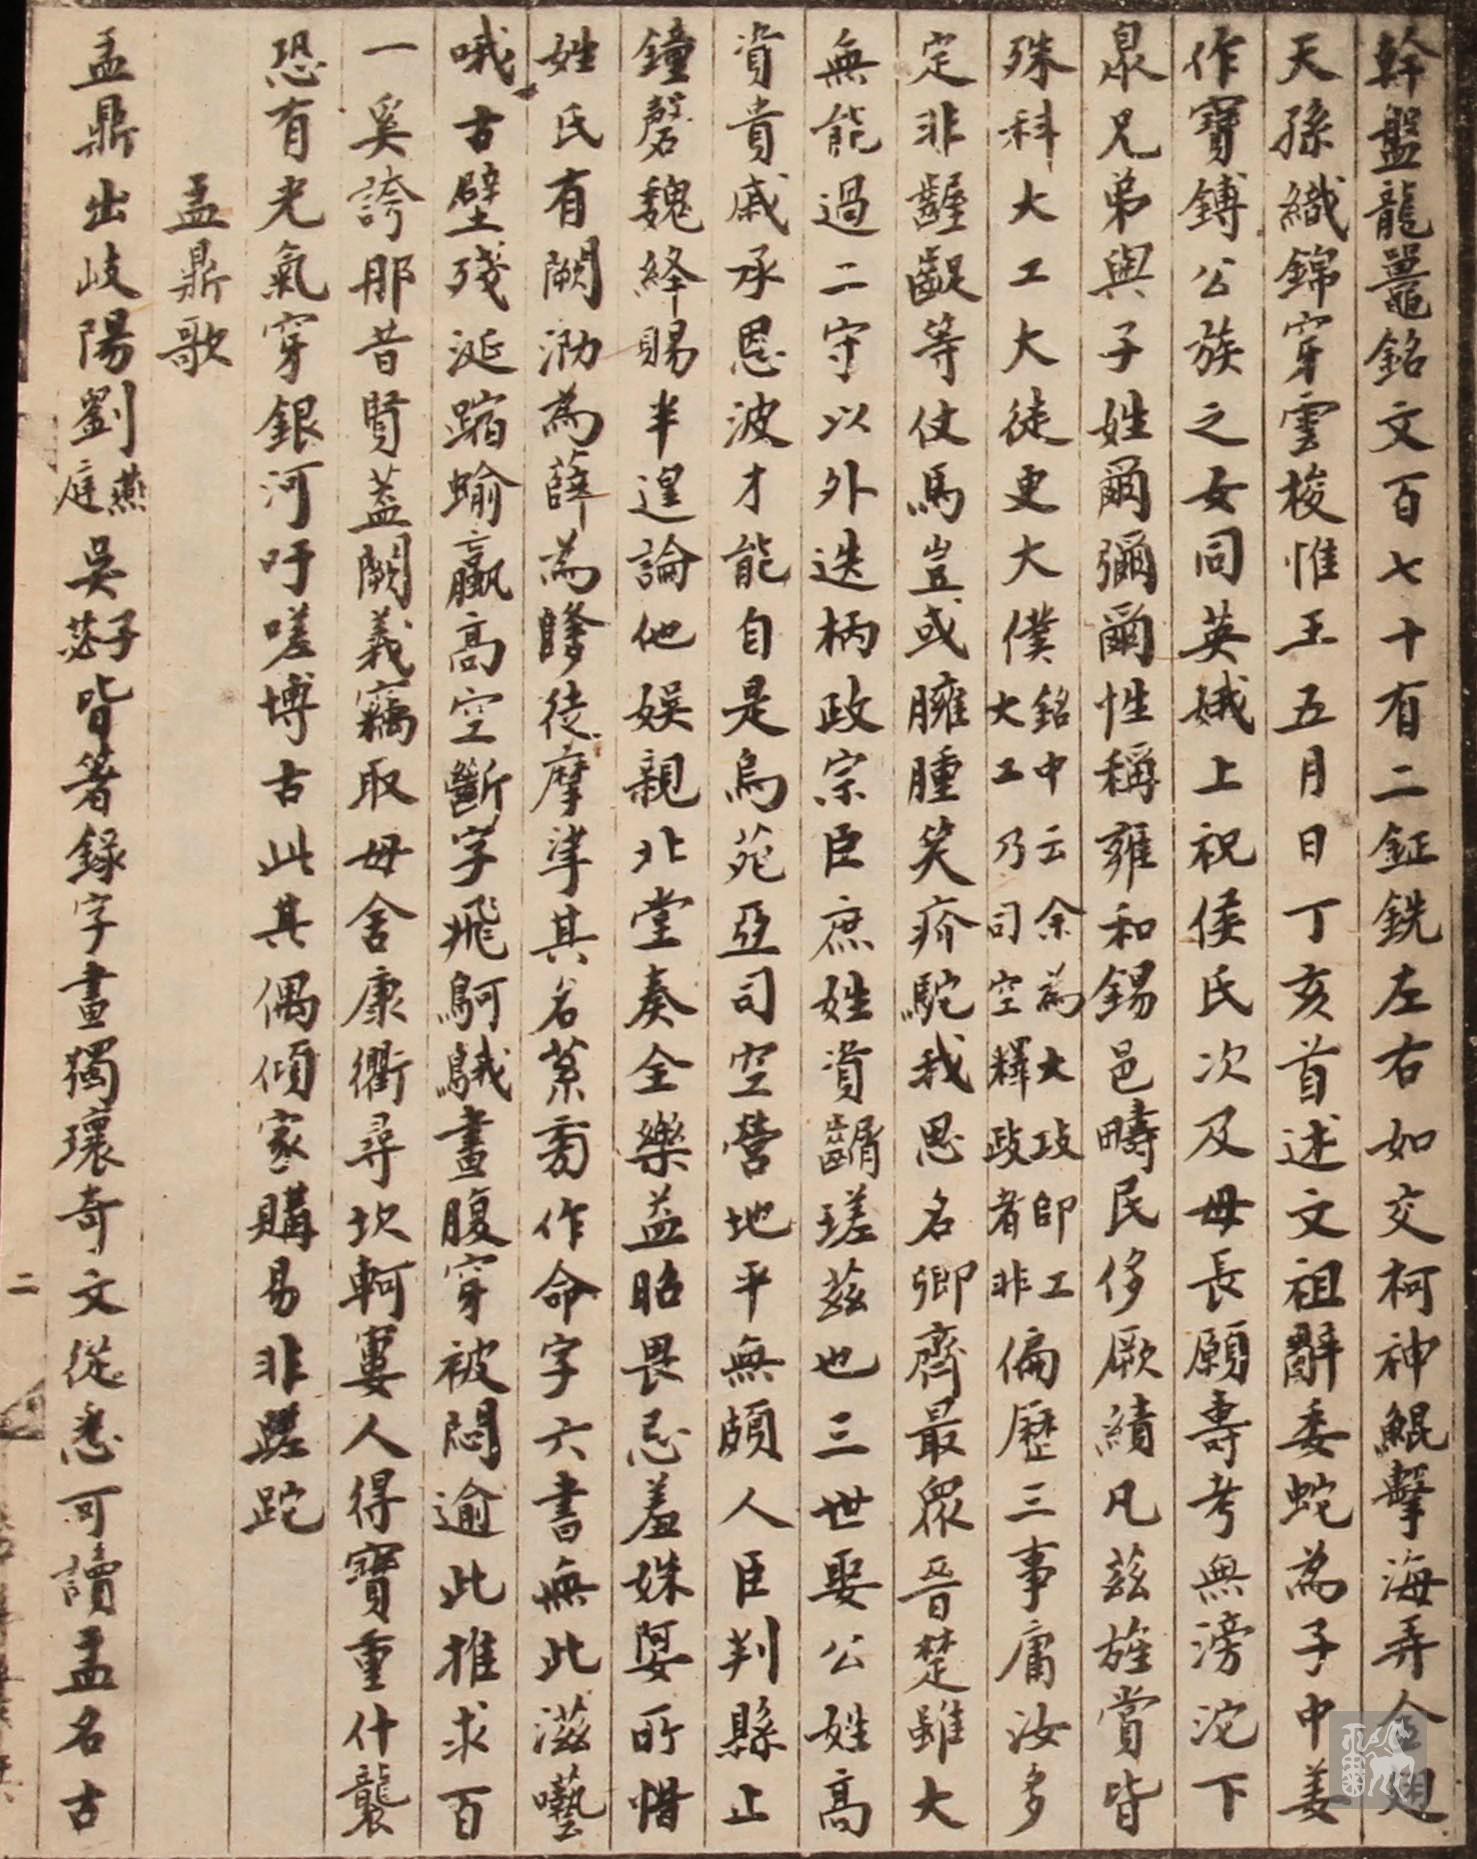 幹盤龍鼉銘文百七十有二鉦銑左右如交柯神鯤擊海弄金翅
天孫織錦穿雲梭惟王五月日丁亥首述文祖辭委蛇為子中姜
作寶鎛公族之女同英娥上祝侯氏次及母長願壽考無滂沱下
泉兄弟與子姓爾彌爾性稱雍和錫邑疇民侈厥績凡茲旌賞皆
殊科大工大徒更大僕銘中云余為大攻師工大工乃司空釋政者非偏歷三事庸汝多
定非齷齪等仗馬豈或臃腫笑疥駝我思名卿齊最眾晉楚雖大
無能過二守以外迭柄政宗臣庶姓資齲瑳茲也三世娶公姓高
資貴戚承恩波才能自是烏苑亞司空營地平無頗人臣判縣止
鐘磬魏絳賜半遑論他娛親北堂奏全樂益昭畏忌羞姝娿所惜
姓氏有闕泐為薛為徒摩挲其名作命字六書無此滋囈
哦古壁殘涎蹜蝓蠃高空斷字飛鴐騀畫腹穿被悶逾此推求百
一奚誇那昔賢蓋闕義竊取毋舍康衢尋坎軻寠人得寶重什襲
恐有光氣穿銀河吁嗟博古此其偶傾家購易非蹉跎
盂鼎歌
盂鼎出岐陽劉燕庭吳子苾皆著錄字畫獨瓌奇文從悉可讀盂名古
二